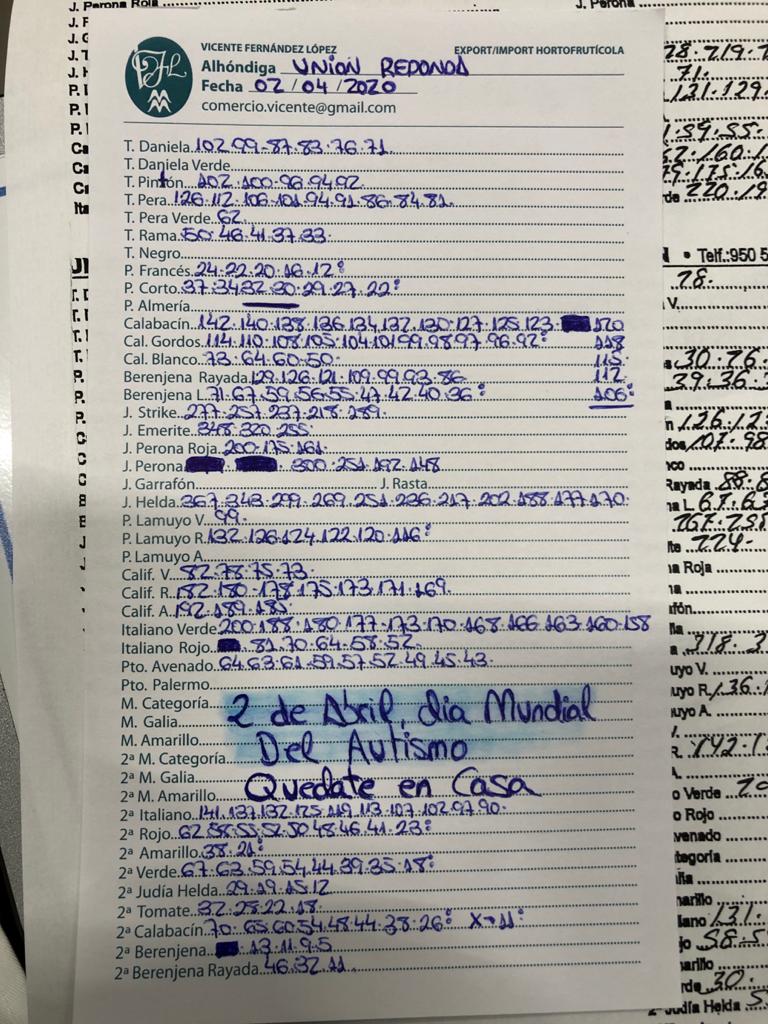 VICENTE FERNÁNDEZ LÓPEZ EXPORT/IMPORT HORTOFRUTÍCOLA
Alhóndiga UNION REDONDA
Fecha 02/04/2020
comercio.vicente@gmail.com
T. Daniela 102.99.87.83.76.71
T. Daniela Verde
T. Pintón 102.100.96.94.92
T. Pera 126.112.106.101.94.91.86.84.81
T. Pera Verde 62
T. Rama 50.46.41.37.33
T. Negro
P. Francés 24.22.20.16.12
P. Corto 37.34.32.30.29.27.22
P. Almería
Calabacín 142.140.138.136.134.132.130.127.125.123. 120
Cal. Gordos 114.110.108.105.104.101.99.98.97.96.92 118
Cal. Blanco 73.64.60.50 115
Berenjena Rayada 129.126.121.109.99.93.86 112
Berenjena L. 71.67.59.56.55.47.42.40.36 106
J. Strike 277.257.237.218.189
J. Emerite 348.320.255
J. Perona Roja 200.175.161
J. Perona 300.251.192.148
J. Garrafón J. Rasta
J. Helda 367.343.299.269.251.236.217.202.188.177.170
P. Lamuyo V. 99
P. Lamuyo R. 132.126.124.122.120.116
P. Lamuyo A.
Calif. V. 82.78.75.73
Calif. R. 182.180.178.175.173.171.169
Calif. A. 192.189.185
Italiano Verde 200.188.180.177.173.170.168.166.163.160.158
Italiano Rojo 81.70.64.58.52
Pto. Avenado 64.63.61.59.57.52.49.45.43
Pto. Palermo
M. Categoría
M. Galia 2 de Abril, dia Mundial
M. Amarillo Del Autismo
2ª M. Categoría
2ª M. Galia Quedate en Casa
2ª M. Amarillo
2ª Italiano 141.137.132.125.119.113.107.102.97.90
2ª Rojo 62.58.55.52.50.48.46.41.23
2ª Amarillo 38.21
2ª Verde 67.63.59.54.44.39.35.18
2ª Judía Helda 29.19.15.12
2ª Tomate 32.28.22.18
2ª Calabacín 70.65.60.54.48.44.38.26 X→11
2ª Berenjena 13.11.9.5
2ª Berenjena Rayada 46.32.11
J. Perona
Telf.:950 5
2ª Judía Helda